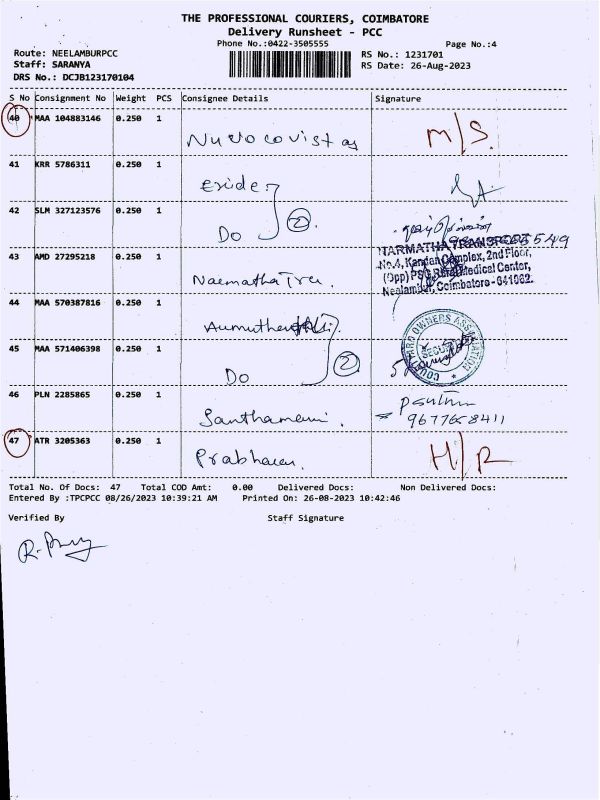 THE PROFESSIONAL COURIERS, COIMBATORE
Delivery Runsheet - PCC
Phone No.:0422-3505555
Page No.:4
Route: NEELAMBURPCC
RS No.: 1231701
Staff: SARANYA
RS Date: 26-Aug-2023
DRS No.: DCJB123170104
S No Consignment No Weight PCS Consignee Details Signature
40 MAA 104883146 0.250 1
M/S.
41 KRR 5786311 0.250 1
Exide
42 SLM 327123576 0.250 1
Do 2
43 AMD 27295218 0.250 1
NARMATHA TRANSPORT
No.4, Kandan Complex, 2nd Floor,
(Opp) PSG Medical Center,
Neelambur, Coimbatore - 641062.
44 MAA 570387816 0.250 1
45 MAA 571406398 0.250 1
Do 2
OWNERS ASSOCIATION
SECURITY
46 PLN 2285865 0.250 1
Santhamani.
9677658411
47 ATR 3205363 0.250 1
Prabhakaran.
H/R
Total No. Of Docs: 47 Total COD Amt: 0.00 Delivered Docs: Non Delivered Docs:
Entered By :TPCPCC 08/26/2023 10:39:21 AM Printed On: 26-08-2023 10:42:46
Verified By Staff Signature